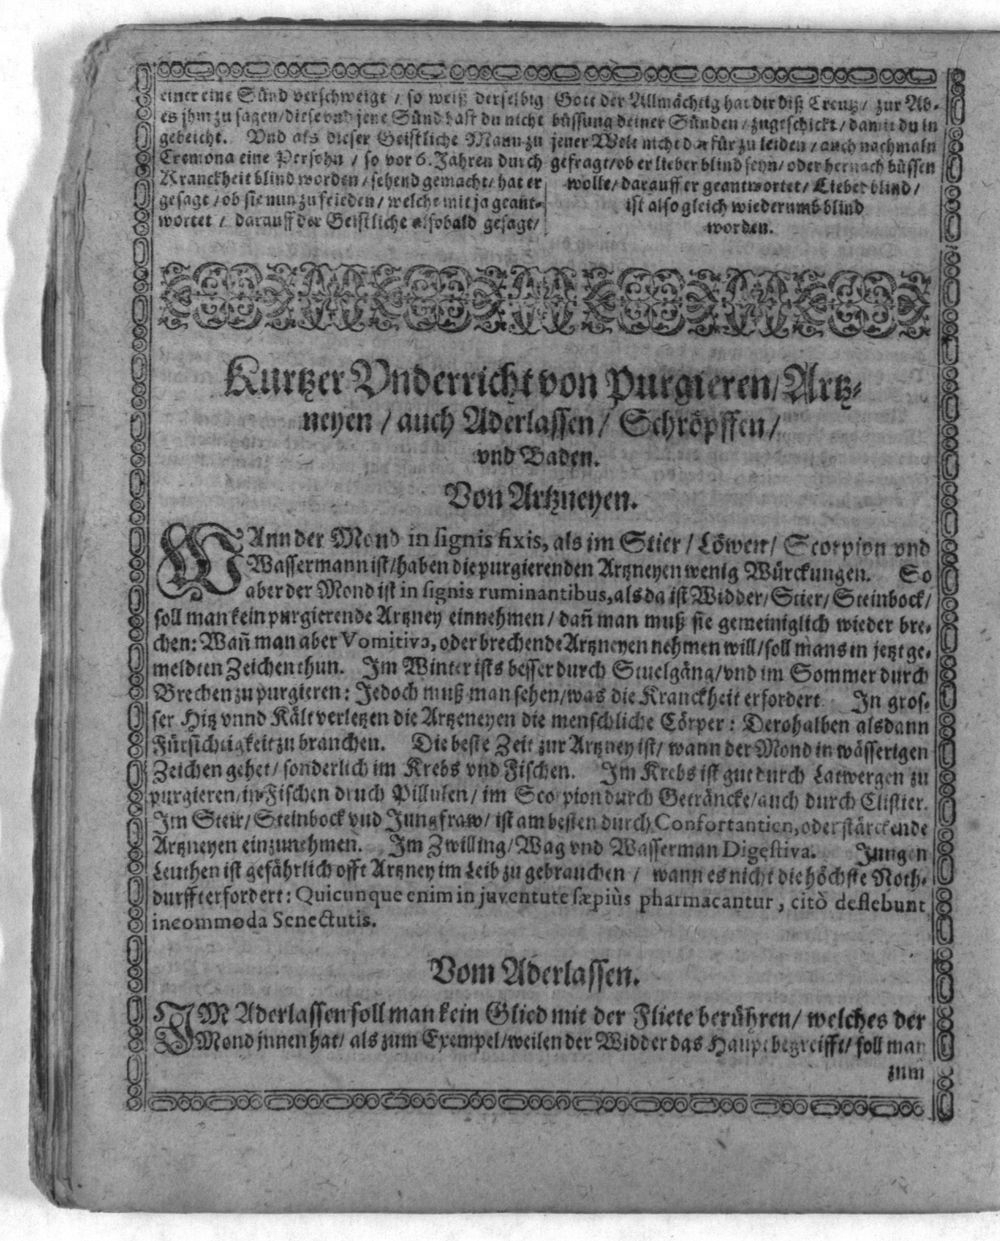 einer eine Sünd verschweigt / so weiß derselbig
es jhm zu sagen / diese vnd jene Sünd hast du nicht
gebeicht. Vnd als dieser Geistliche Mann zu
Cremona eine Persohn / so vor 6. Jahren durch
Kranckheit blind worden / sehend gemacht / hat er
gesagt / ob sie nun zu frieden / welche mit ja geant-
wortet / darauff der Geistliche alsobald gesagt /
Gott der Allmächtig hat dir diß Creutz / zur Ab-
büssung deiner Sünden / zugeschickt / damit du in
jener Welt nicht darfür zu leiden / auch nachmaln
gefragt / ob er lieber blind seyn / oder hernach büssen
wolle / darauff er geantwortet / Lieber blind /
ist also gleich wiederumb blind
worden.
Kurtzer Vnderricht von Purgieren / Artz-
neyen / auch Aderlassen / Schröpffen /
vnd Baden.
Von Artzneyen.
WAnn der Mond in signis fixis, als im Stier / Löwen / Scorpion vnd
Wassermann ist / haben die purgierenden Artzneyen wenig Würckungen. So
aber der Mond ist in signis ruminantibus, als da ist Widder / Stier / Steinbock /
soll man kein purgierende Artzney einnehmen / dañ man muß sie gemeiniglich wieder bre-
chen: Wañ man aber Vomitiva, oder brechende Artzneyen nehmen will / soll mans in jetzt ge-
meldten Zeichen thun. Im Winter ists besser durch Stuelgäng / vnd im Sommer durch
Brechen zu purgieren: Jedoch muß man sehen / was die Kranckheit erfordert. In gros-
ser Hitz vnnd Kält verletzen die Artzeneyen die menschliche Cörper: Derohalben alsdann
Fürsichtigkeit zu brauchen. Die beste Zeit zur Artzney ist / wann der Mond in wässerigen
Zeichen gehet / sonderlich im Krebs vnd Fischen. Im Krebs ist gut durch Latwergen zu
purgieren / in Fischen druch Pillulen / im Scorpion durch Geträncke / auch durch Clistier.
Im Steir / Steinbock vnd Jungfraw / ist am besten durch Confortantien, oder stärckende
Artzneyen einzunehmen. Im Zwilling / Wag vnd Wasserman Digestiva. Jungen
Leuthen ist gefährlich offt Artzney im Leib zu gebrauchen / wann es nicht die höchste Noth-
durfft erfordert: Quicunque enim in juventute sæpiùs pharmacantur, citò deflebunt
incommoda Senectutis.
Vom Aderlassen.
IM Aderlassen soll man kein Glied mit der Fliete berühren / welches der
Mond jnnen hat / als zum Exempel / weilen der Widder das Haupt begreifft / soll man
zum